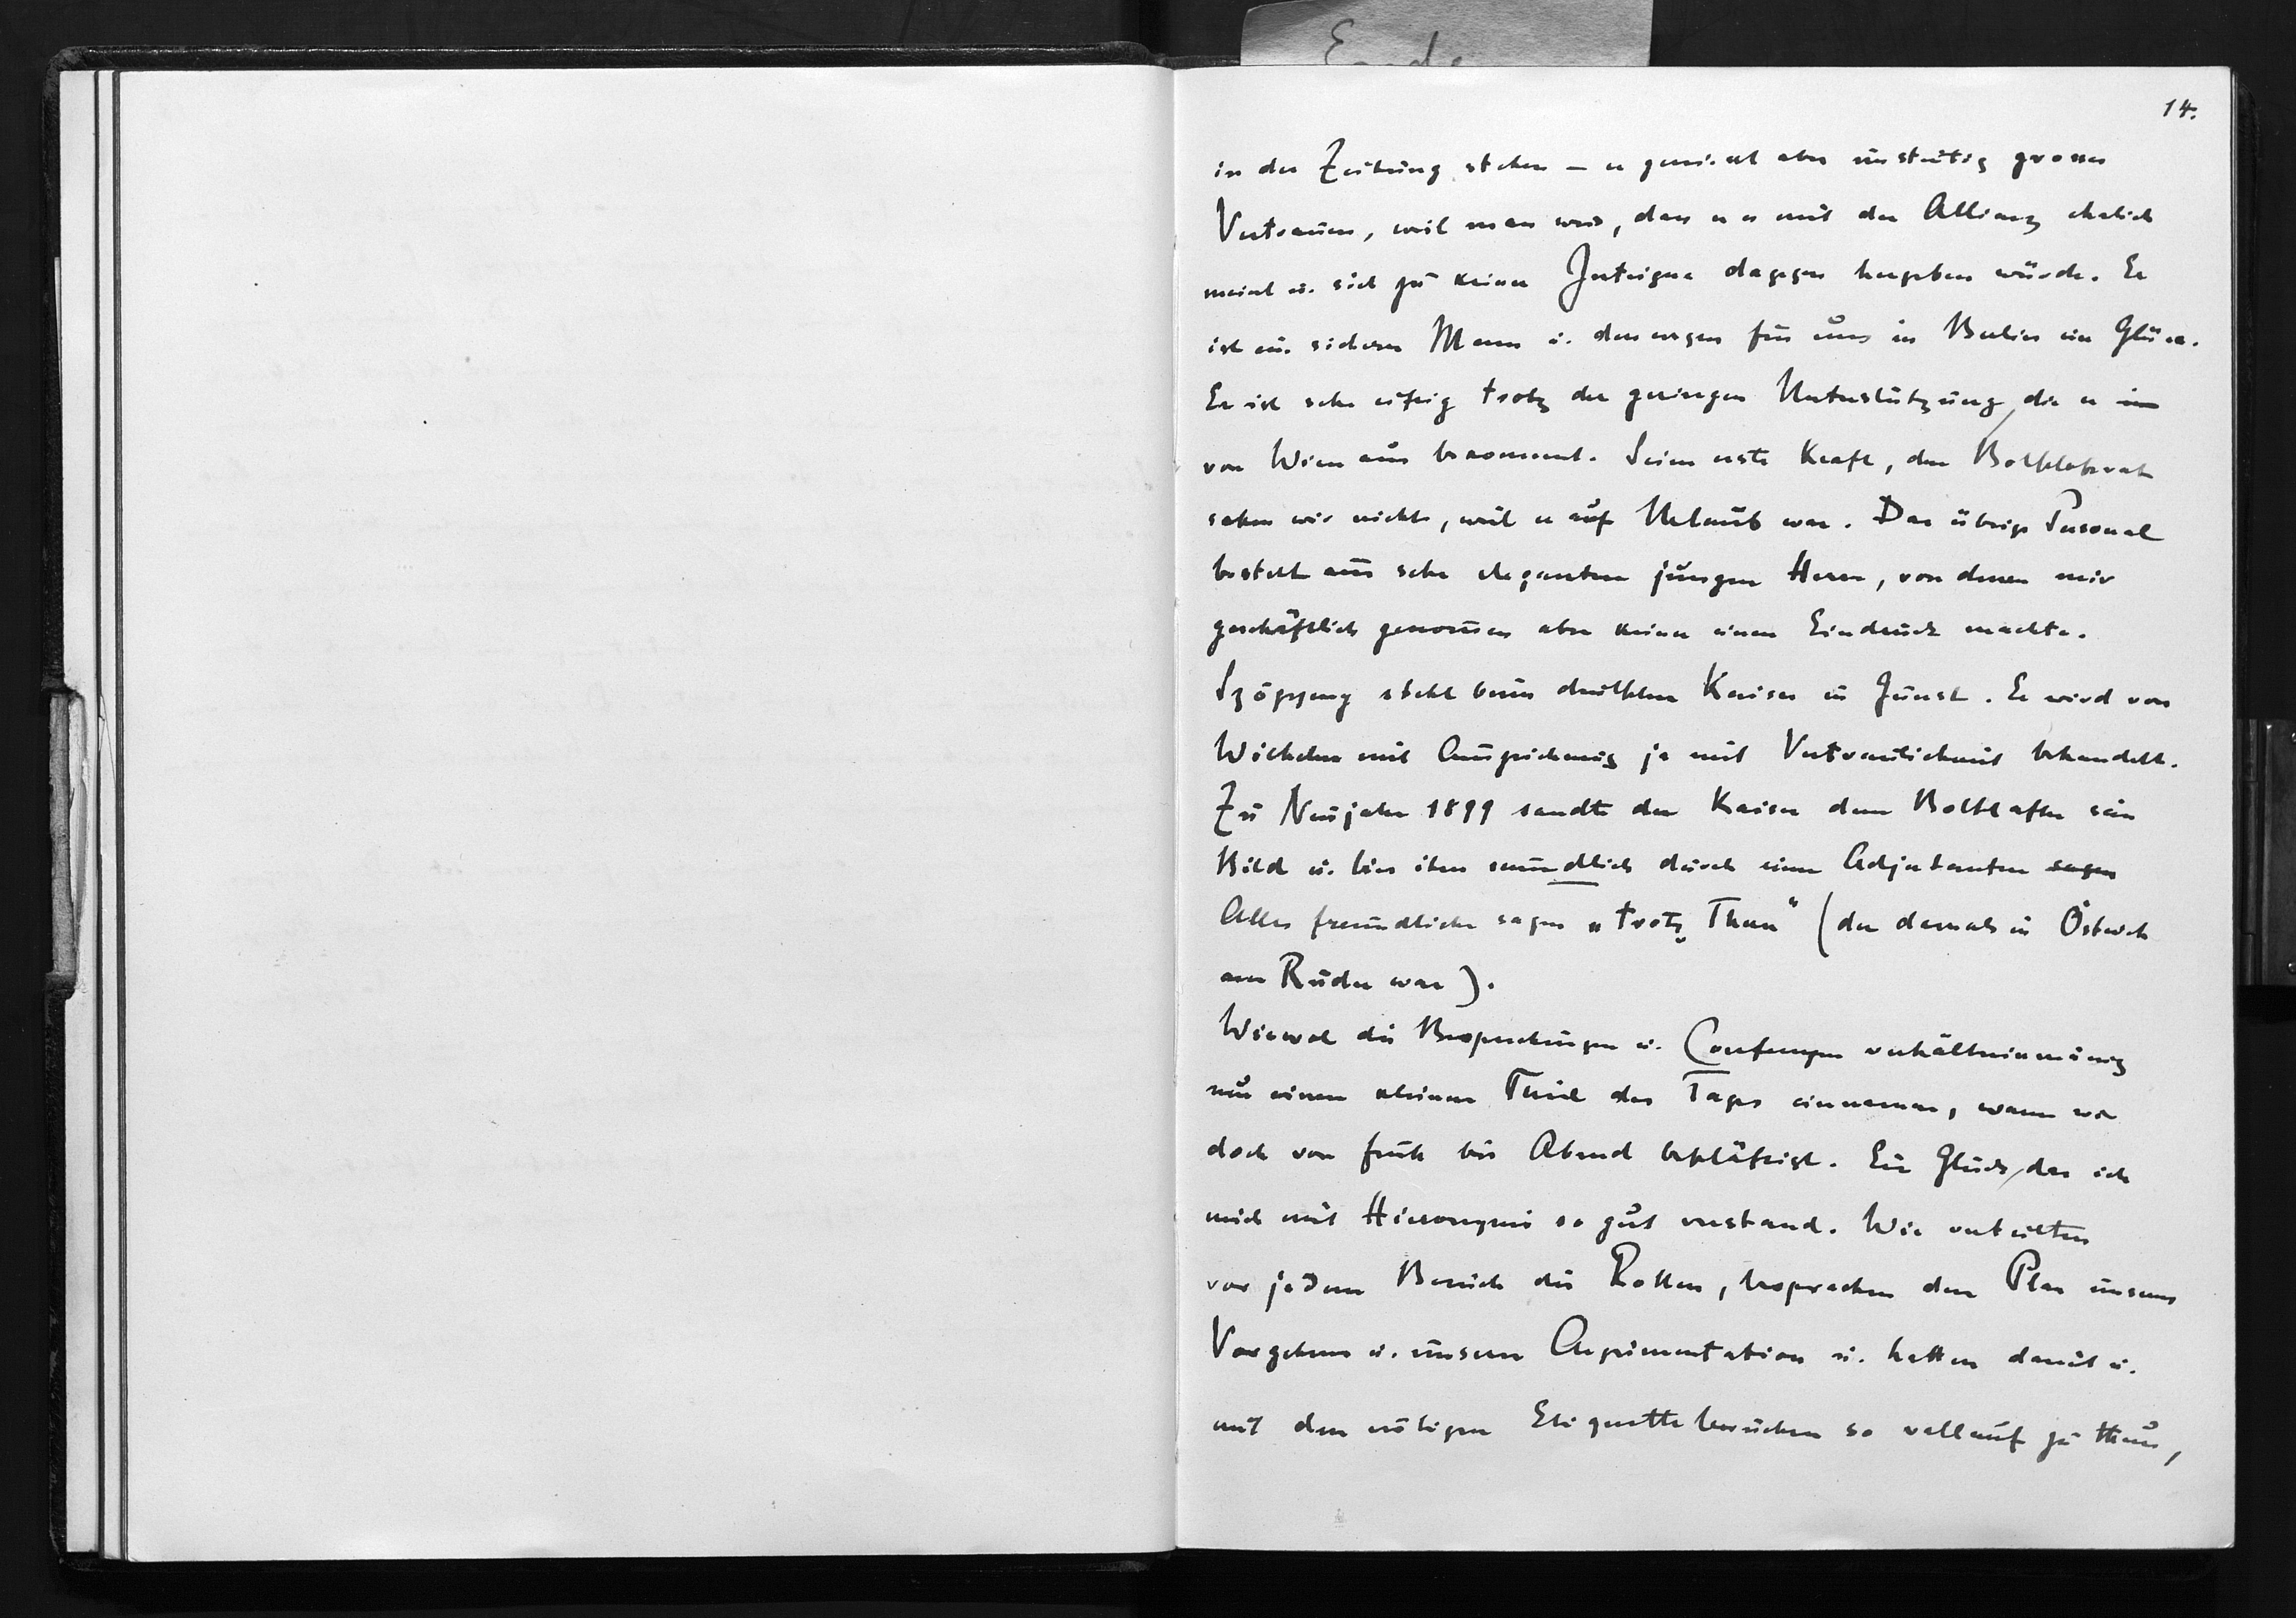 Ende
14.
in der Zeitung stehen – er geniesst aber unstreitig grosses
Vertrauen, weil man weis, dass er es mit der Allianz ehrlich
meint u. sich zu keiner Intrigue dagegen hergeben würde. Er
ist ein sicherer Mann u. deswegen für uns in Berlin ein Glück.
Er ist sehr eifrig trotz der geringen Unterstützung, die er im
von Wien aus bekommt. Seine erste Kraft, den Botschaftsrat
sahen wir nicht, weil er auf Urlaub war. Das übrige Personal
besteht aus sehr eleganten jungen Herrn, von denen mir
geschäftlich genommen aber keiner einen Eindruck machte.
Szögyeny steht beim deutschen Kaiser in Gunst. Er wird von
Wilhelm mit Auszeichnung ja mit Vertraulichkeit behandelt.
Zu Neujahr 1899 sandte der Kaiser dem Botschafter sein
Bild u. lies ihm mündlich durch einen Adjutanten sagen
Alles freundliche sagen „trotz Thun“ (der damals in Österreich
am Ruder war).
Wiewol die Besprechungen u. Conferenzen verhältnismässig
nur einen kleinen Theil des Tages einnamen, waren wir
doch von früh bis Abend beschäftigt. Ein Glück, das ich
mich mit Hieronymi so gut verstand. Wir verteilten
vor jedem Besuch die Rollen, besprachen den Plan unseres
Vorgehens u. unserer Argumentation u. hatten damit u.
mit den nötigen Etiquettebesuchen so vollauf zu thun,